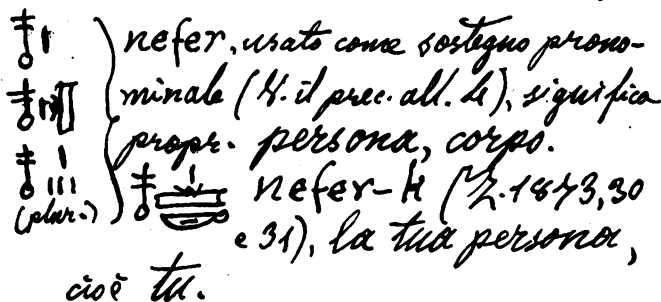 nefer, usato come sostegno prono-
minale (V. il prec. all. 4), significa
propr. persona, corpo.
(plur.)
nefer-k (Z. 1873, 30
e 31), la tua persona,
cioè tu.